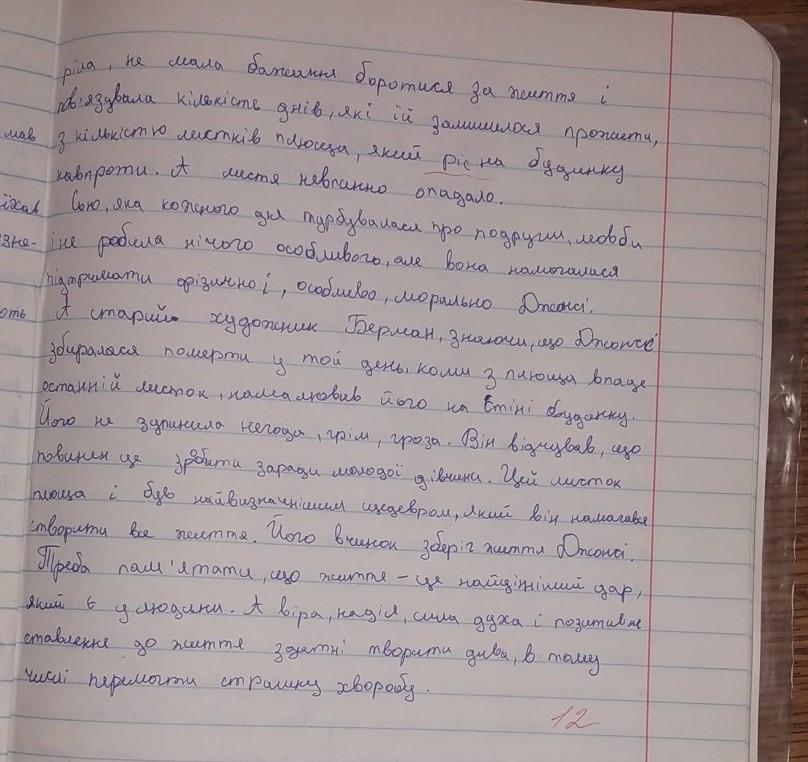 ріла, не мала бажання боротися за життя і
пов'язувала кількість днів, які їй залишилося прожити,
мав з кількістю листків плюща, який ріс на будинку
навпроти. А листя невпинно опадало.
їхав Сью, яка кожного дня турбувалася про подругу, мовби
зна- і не робила нічого особливого, але вона намагалася
підтримати фізично і, особливо, морально Джонсі.
оть А старий художник Берман, знаючи, що Джонсі
збиралася померти у той день, коли з плюща впаде
останній листок, намалював його на стіні будинку.
Його не зупинила негода, грім, гроза. Він відчував, що
повинен це зробити заради молодої дівчини. Цей листок
плюща і був найвизначнішим шедевром, який він намагався
створити все життя. Його вчинок зберіг життя Джонсі.
Треба пам'ятати, що життя – це найцінніший дар,
який є у людини. А віра, надія, сила духа і позитивне
ставлення до життя здатні творити дива, в тому
числі перемогти страшну хворобу.
12